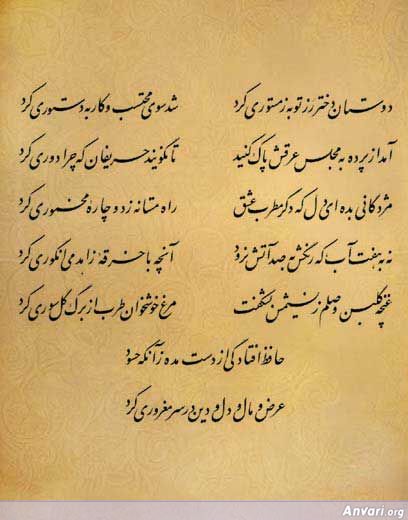 دوستان دختر رز توبه ز مستوری کرد شد سوی محتسب و کار به دستوری کرد
آمد از پرده به مجلس عرقش پاک کنید تا نگویند حریفان که چرا دوری کرد
مژدگانی بده ای دل که دگر مطرب عشق راه مستانه زد و چارهٔ مخموری کرد
نه به هفت آب که رنگش به صد آتش نرود آنچه با خرقهٔ زاهد می انگوری کرد
غنچه گلبن وصلم ز نسیمش بشکفت مرغ خوشخوان طرب از برگ گل سوری کرد
حافظ افتادگی از دست مده زآنکه حسود
عرض و مال و دل و دین در سر مغروری کرد
Anvari.org